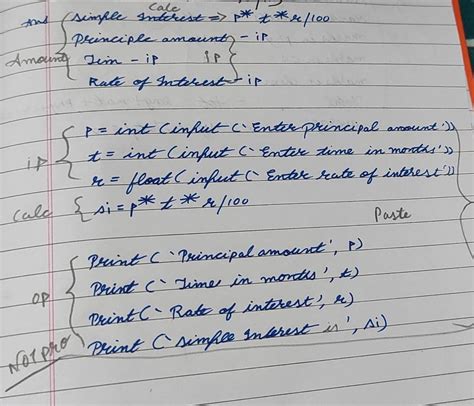 Calc
Ans (Simple Interest => p* t* r/100
Principle amount - ip
Amount Tim - ip ip
Rate of Interest - ip
p = int (input (`Enter principal amount'))
t = int (input (` Enter time in months'))
ip
r = float (input (` Enter rate of interest'))
Calc { si = p* t* r/100
Paste
Print (`Principal amount', p)
Print (` Time in months', t)
op
Print (` Rate of interest', r)
NOT PRO
Print (` Simple Interest is', si)